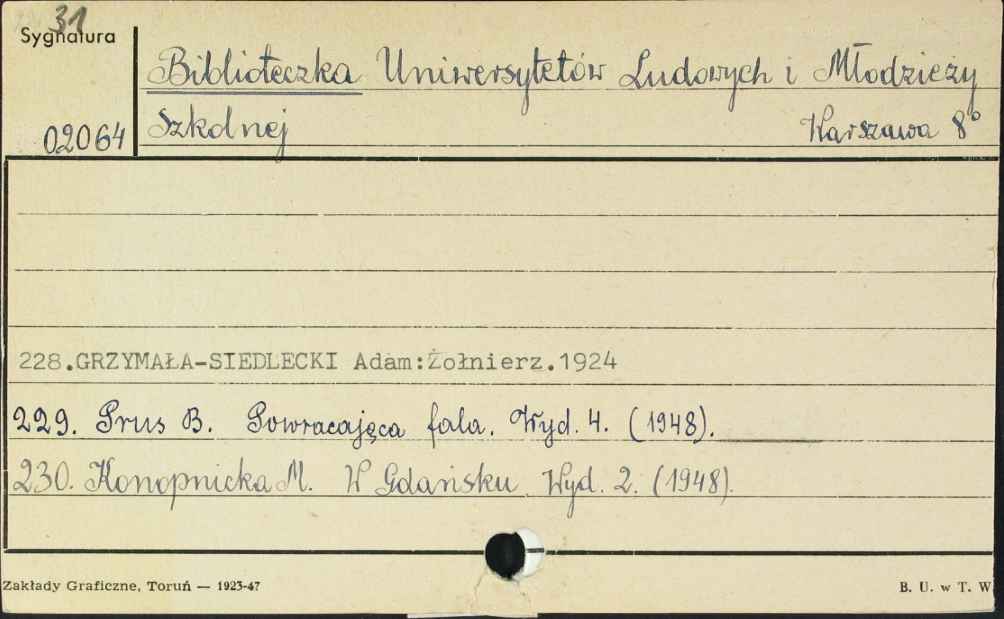 31
Sygnatura
Biblioteczka Uniwersytetów Ludowych i Młodzieży
02064
Szkolnej Warszawa 8°
228.GRZYMAŁA-SIEDLECKI Adam:Żołnierz.1924
229. Prus B. Powracająca fala. Wyd. 4. (1948).
230. Konopnicka M. W Gdańsku Wyd. 2. (1948).
Zakłady Graficzne, Toruń — 1923-47 B. U. w T. W